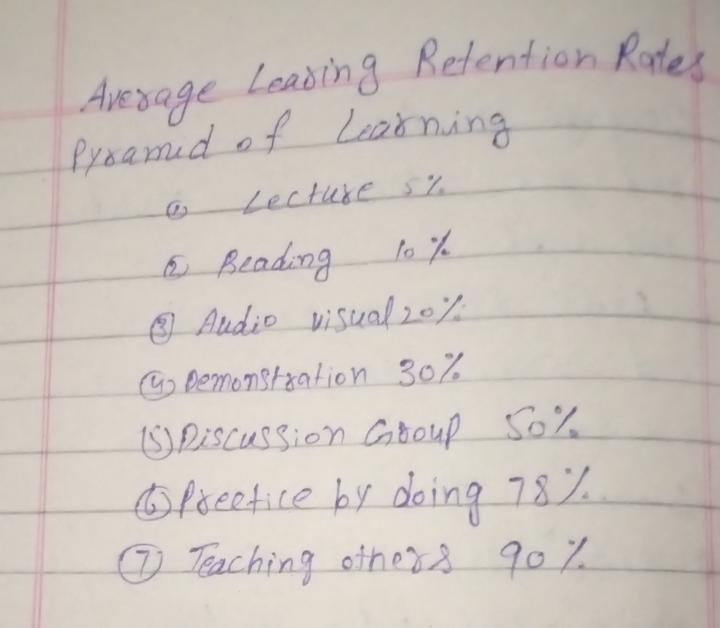 Average Learing Retention Rates
Pyramid of Learning
① Lecture 5%
② Reading 10%
③ Audio visual 20%
④ Demonstration 30%
(5) Discussion Group 50%
⑥ Preetice by doing 78%
⑦ Teaching others 90%